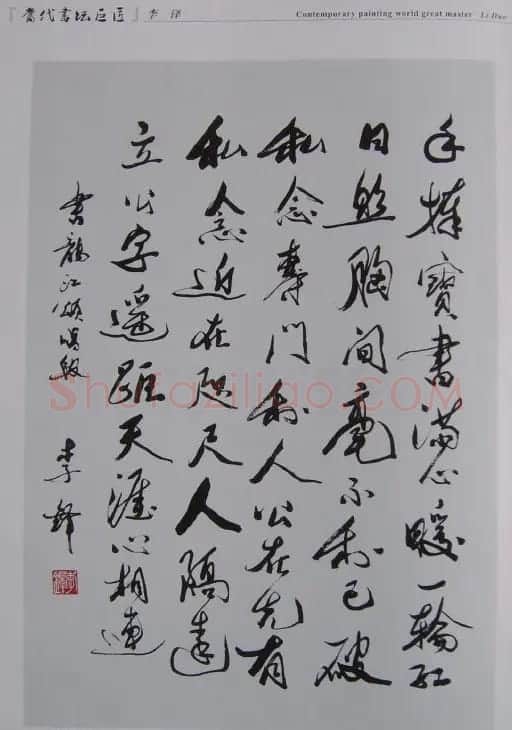 『当代书坛巨匠』李铎
Contemporary painting world great master Li Duo
手捧寶書滿心暖一輪紅
日照胸間毫不利己破
私念專門利人公在先有
私念近在咫尺人隔遠
立公字遥距天涯心相連
書龍江頌唱段
李鐸
Shufaziliao.COM